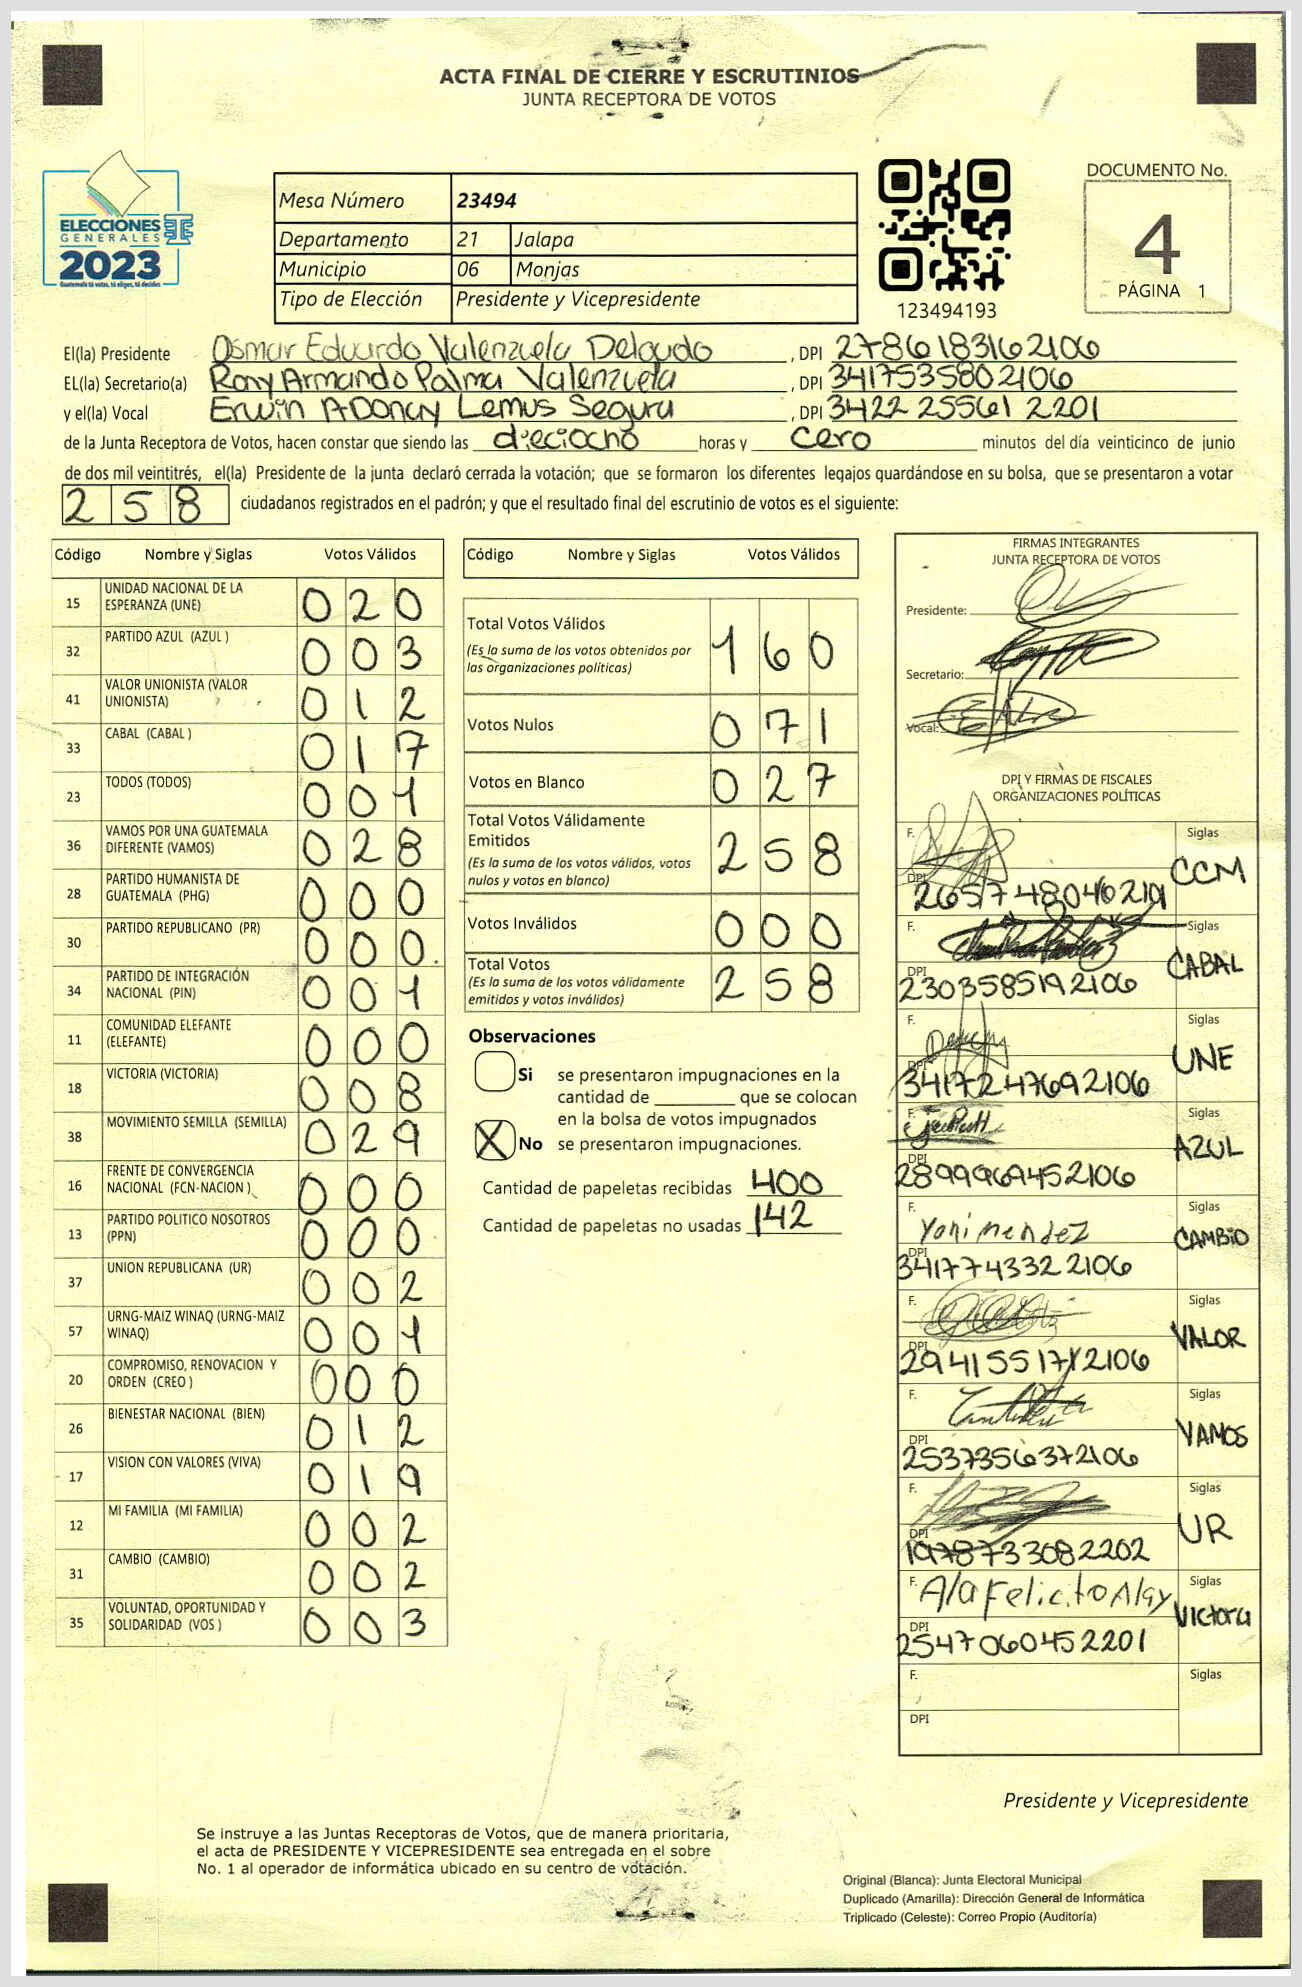 ACTA FINAL DE CIERRE Y ESCRUTINIOS
JUNTA RECEPTORA DE VOTOS
ELECCIONES
GENERALES
2023
Guatemala tú votas, tú eliges, tú decides
Mesa Número 23494
Departamento 21 Jalapa
Municipio 06 Monjas
Tipo de Elección Presidente y Vicepresidente
123494193
DOCUMENTO No.
4
PÁGINA 1
El(la) Presidente Osmar Eduardo Valenzuela Delgado, DPI 2786183162106
EL(la) Secretario(a) Rony Armando Palma Valenzuela, DPI 3417535802106
y el(la) Vocal Erwin ADonay Lemus Segura, DPI 3422 25561 2201
de la Junta Receptora de Votos, hacen constar que siendo las dieciocho horas y cero minutos del día veinticinco de junio
de dos mil veintitrés, el(la) Presidente de la junta declaró cerrada la votación; que se formaron los diferentes legajos guardándose en su bolsa, que se presentaron a votar
258 ciudadanos registrados en el padrón; y que el resultado final del escrutinio de votos es el siguiente:
Código Nombre y Siglas Votos Válidos
15 UNIDAD NACIONAL DE LA ESPERANZA (UNE) 020
32 PARTIDO AZUL (AZUL ) 003
41 VALOR UNIONISTA (VALOR UNIONISTA) 012
33 CABAL (CABAL ) 017
23 TODOS (TODOS) 001
36 VAMOS POR UNA GUATEMALA DIFERENTE (VAMOS) 028
28 PARTIDO HUMANISTA DE GUATEMALA (PHG) 000
30 PARTIDO REPUBLICANO (PR) 000.
34 PARTIDO DE INTEGRACIÓN NACIONAL (PIN) 001
11 COMUNIDAD ELEFANTE (ELEFANTE) 000
18 VICTORIA (VICTORIA) 008
38 MOVIMIENTO SEMILLA (SEMILLA) 029
16 FRENTE DE CONVERGENCIA NACIONAL (FCN-NACION ) 000
13 PARTIDO POLITICO NOSOTROS (PPN) 000
37 UNION REPUBLICANA (UR) 002
57 URNG-MAIZ WINAQ (URNG-MAIZ WINAQ) 001
20 COMPROMISO, RENOVACION Y ORDEN (CREO ) 000
26 BIENESTAR NACIONAL (BIEN) 012
17 VISION CON VALORES (VIVA) 019
12 MI FAMILIA (MI FAMILIA) 002
31 CAMBIO (CAMBIO) 002
35 VOLUNTAD, OPORTUNIDAD Y SOLIDARIDAD (VOS ) 003
Código Nombre y Siglas Votos Válidos
Total Votos Válidos 160
(Es la suma de los votos obtenidos por
las organizaciones políticas)
Votos Nulos 071
Votos en Blanco 027
Total Votos Válidamente
Emitidos 258
(Es la suma de los votos válidos, votos
nulos y votos en blanco)
Votos Inválidos 000
Total Votos 258
(Es la suma de los votos válidamente
emitidos y votos inválidos)
Observaciones
Si se presentaron impugnaciones en la
cantidad de ________ que se colocan
en la bolsa de votos impugnados
X No se presentaron impugnaciones.
Cantidad de papeletas recibidas 400
Cantidad de papeletas no usadas 142
FIRMAS INTEGRANTES
JUNTA RECEPTORA DE VOTOS
Presidente:
Secretario:
Vocal:
DPI Y FIRMAS DE FISCALES
ORGANIZACIONES POLÍTICAS
F. Siglas CCM
DPI
F. Siglas CABAL
DPI 2303585192106
F. Siglas UNE
DPI 3417247692106
F. Siglas AZUL
DPI 2899969452106
F. Yoni Mendez Siglas CAMBiO
DPI 3417743322106
F. Siglas VALOR
DPI
F. Siglas VAMOS
DPI 2537356372106
F. Siglas UR
DPI 1978733082202
F. Siglas Victoria
DPI 2547060452201
F. Siglas
DPI
Presidente y Vicepresidente
Se instruye a las Juntas Receptoras de Votos, que de manera prioritaria,
el acta de PRESIDENTE Y VICEPRESIDENTE sea entregada en el sobre
No. 1 al operador de informática ubicado en su centro de votación.
Original (Blanca): Junta Electoral Municipal
Duplicado (Amarilla): Dirección General de Informática
Triplicado (Celeste): Correo Propio (Auditoría)